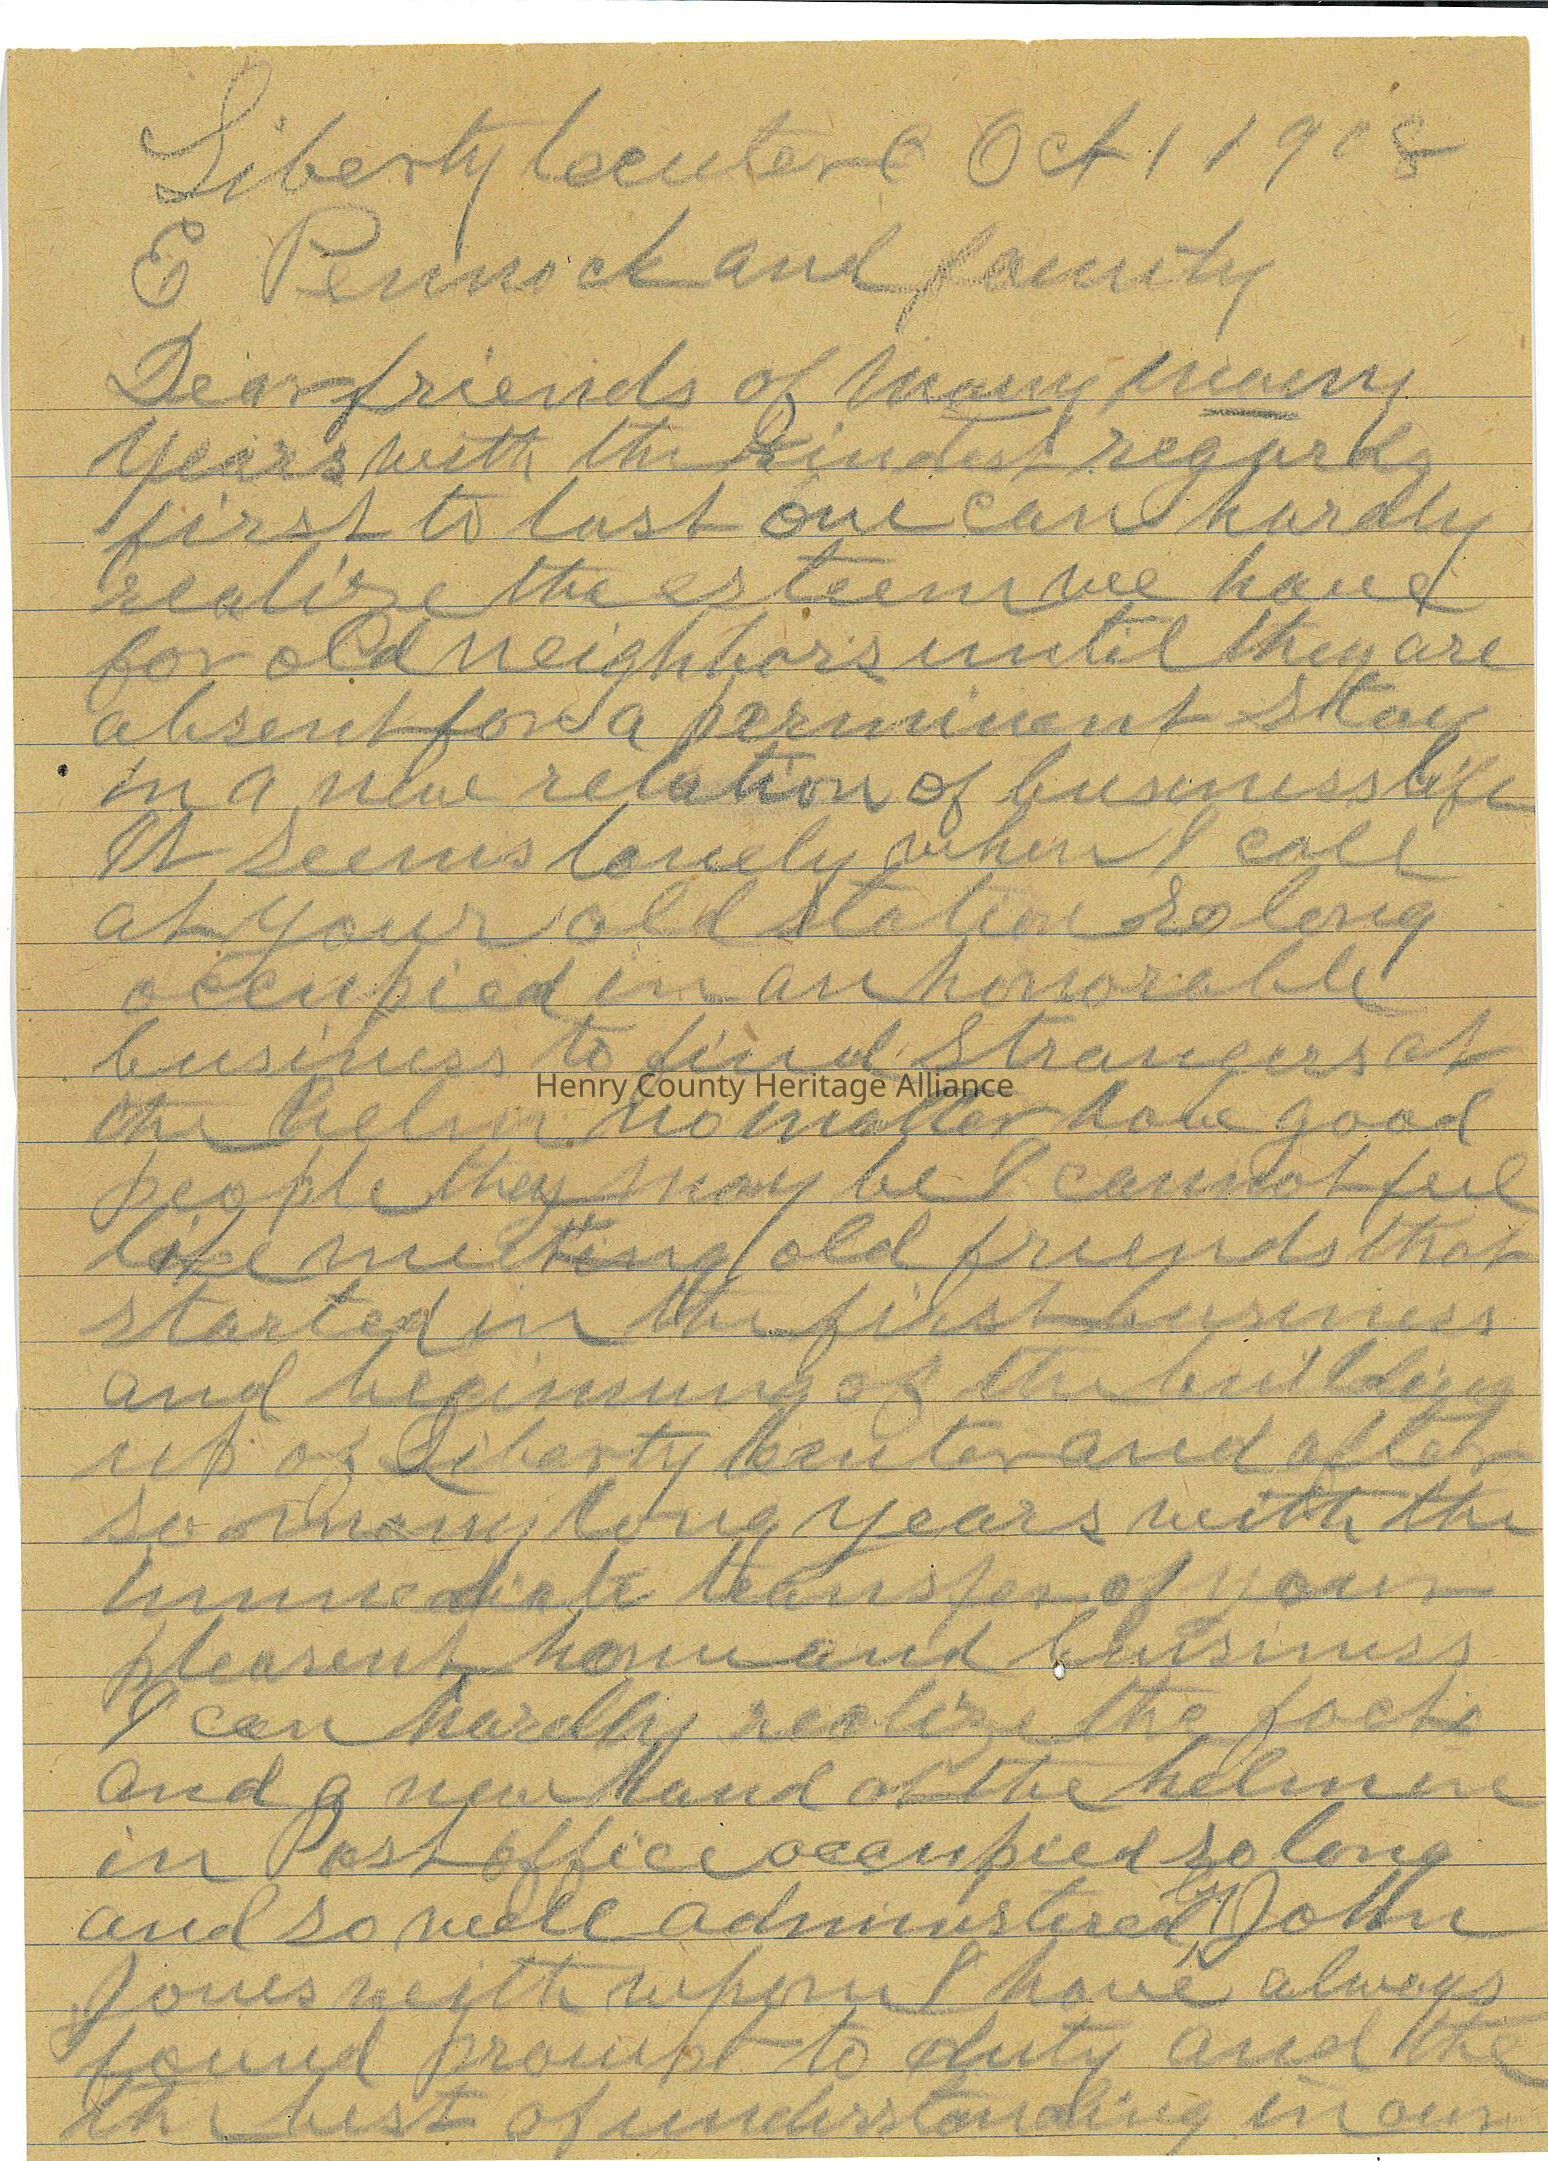 Liberty Center O Oct 1 1908
E Pennock and family
Dear friends of many many
years with the kindest regards
first to last one can hardly
realize the esteem we have
for old neighbors until they are
absent for a perminent stay
in a new relation of business life
It seems lonely when I call
at your old station so long
occupied in an honorable
business to find strangers at
Henry County Heritage Alliance
the helm no matter how good
people they may be I cannot feel
like meeting old friends that
started in the first business
and beginning of the building
up of Liberty Center and after
so many long years with the
immediate transfer of your
pleasent home and business
I can hardly realize the facts
and a new hand at the helm
in Post office occupied so long
and so well administered by John
Jones with whom I have always
found prompt to duty and the
the best of understanding in our